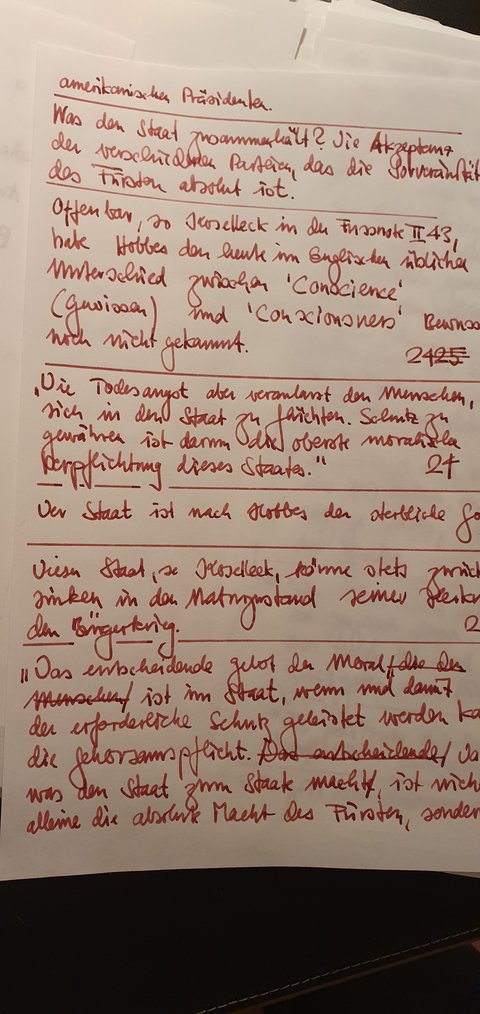 amerikanischen Präsidenten.
Was den Staat zusammenhält? Die Akzeptanz
der verschiedenen Parteien, das die Souveränität
des Fürsten absolut ist.
Offenbar, so Koselleck in der Fussnote II 43,
habe Hobbes den heute im Englischen üblichen
Unterschied zwischen 'Conscience'
(Gewissen) und 'Consciousness'
noch nicht gekannt. 24 25
„Die Todesangst aber veranlasst den Menschen,
sich in den Staat zu flüchten. Schutz zu
gewähren ist darum die oberste moralische
Verpflichtung dieses Staates." 24
Der Staat ist nach Hobbes der sterbliche
Dieser Staat, so Koselleck, könne stets zurück
sinken in den Naturzustand seiner
den Bürgerkrieg. 2
„Das entscheidende gebot der Moral, die den
Menschen ist im Staat, wenn und damit
der erforderliche Schutz geleistet werden
die gehorsamspflicht. Das entscheidende
was den Staat zum Staate macht, ist nicht
alleine die absolute Macht des Fürsten, sondern